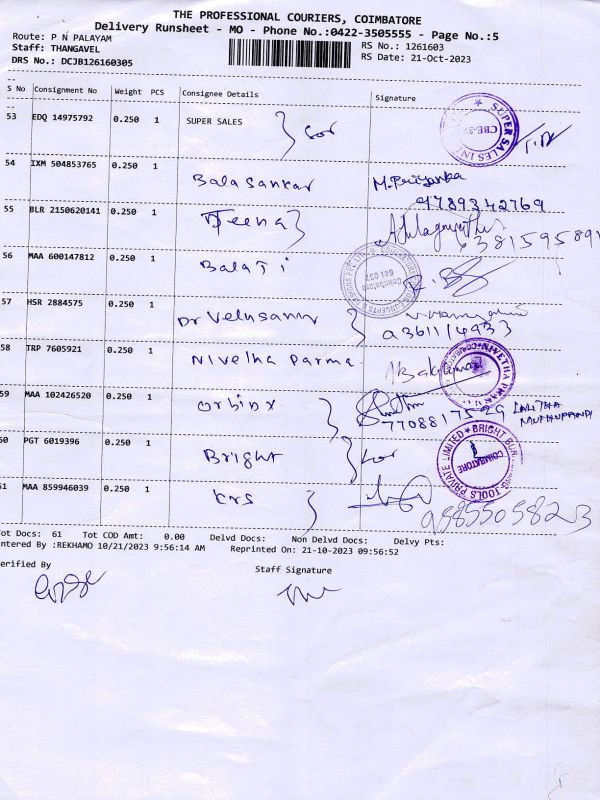 THE PROFESSIONAL COURIERS, COIMBATORE
Delivery Runsheet - MO - Phone No.:0422-3505555 - Page No.:5
Route: P N PALAYAM
RS No.: 1261603
Staff: THANGAVEL
RS Date: 21-Oct-2023
DRS No.: DCJB126160305
S No Consignment No Weight PCS Consignee Details Signature
53 EDQ 14975792 0.250 1 SUPER SALES
54 IXM 504853765 0.250 1 Balasankar M. Priyanka
9789342769
55 BLR 2150620141 0.250 1 Teena
6381595891
56 MAA 600147812 0.250 1 Balaji
57 HSR 2884575 0.250 1 Dr Velusamy
58 TRP 7605921 0.250 1 Nivetha Parma
59 MAA 102426520 0.250 1 Orbinx
7708817529 LALITHA
MUTHUPANDI
60 PGT 6019396 0.250 1 Bright
61 MAA 859946039 0.250 1 KRS
9585505823
Tot Docs: 61 Tot COD Amt: 0.00 Delvd Docs: Non Delvd Docs: Delvy Pts:
Entered By :REKHAMO 10/21/2023 9:56:14 AM Reprinted On: 21-10-2023 09:56:52
Verified By
Staff Signature